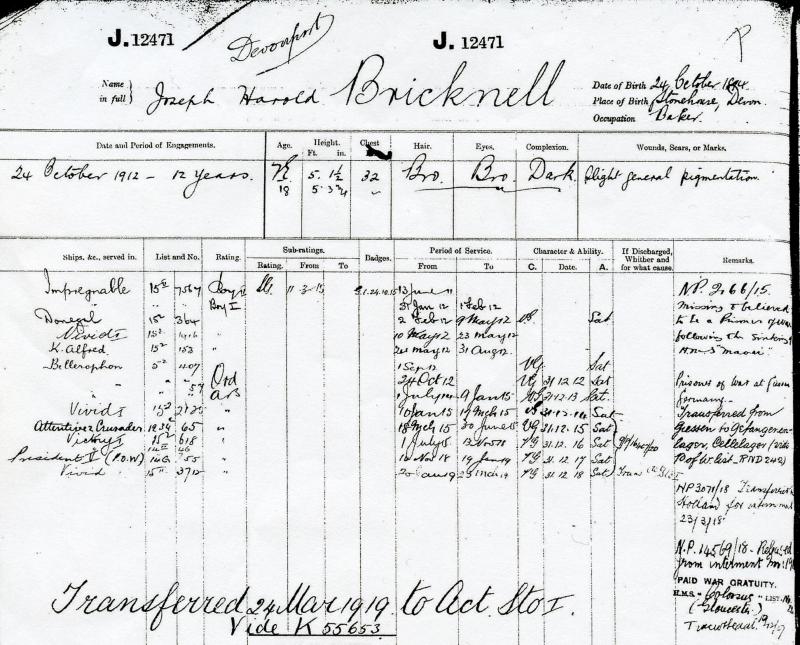 J. 12471 Devonport J. 12471 P
Name in full } Joseph Harold Bricknell
Date of Birth 24 October 1894.
Place of Birth Stonehouse, Devon.
Occupation Baker.
Date and Period of Engagements. Age. Height. Ft. in. Chest Hair. Eyes. Complexion. Wounds, Scars, or Marks.
24 October 1912 – 12 years. 5. 1½ 32 Bro. Bro. Dark. Slight general pigmentation.
18 5. 3¾ "
Ships, &c., served in. List and No. Rating. Sub-ratings. Rating. From To Badges. Period of Service. From To Character & Ability. C. Date. A. If Discharged, Whither and for what cause. Remarks.
Impregnable 15² 7567 Boy II 11.3.15 13 June 11
" " Boy I Jan 12 1 Feb 12
Donegal 15² 364 " 2 Feb 12 9 May 12 Sat
Vivid I 15² " 10 May 12 23 May 12
K. Alfred 15² 153 " 24 May 12 31 Aug 12
Bellerophon 5² 407 1 Sep 12 VG Sat
" " 57 Ord 24 Oct 12 VG 31.12.12 Sat
" AB 1 July 9 Jan 15 VG 31.12.13 Sat
Vivid I 15² " 10 Jan 15 17 Mch 15 VG 31.12.14 Sat
Attentive 2 Crusader 65 " 18 Mch 15 30 June 15 VG 31.12.15 Sat
Victory I 15² 618 " 1 July 15 13 Nov 18 VG 31.12.16 Sat
President V (P.O.W) 55 " 14 Nov 18 19 Jan 19 VG 31.12.17 Sat
Vivid 15² 3712 " 20 Jan 19 23 Mch 19 VG 31.12.18 Sat
N.P. 2166/15.
Missing & believed
to be a Prisoner of War
following the sinking of
H.M.S "Maori"
Prisoner of War at Giessen
Germany
Transferred from
Giessen to Gefangenen-
lager, Cellelager (vide
P of W. list. RND 242)
NP 3071/18 Transferred to
Holland for internment
23/3/18
N.P. 14569/18 - Released
from interment
PAID WAR GRATUITY.
H.M.S. "Colossus" LIST. No.
(Gloucester.)
Transferred 24 Mar 1919 to Act. Sto I.
Vide K 55653